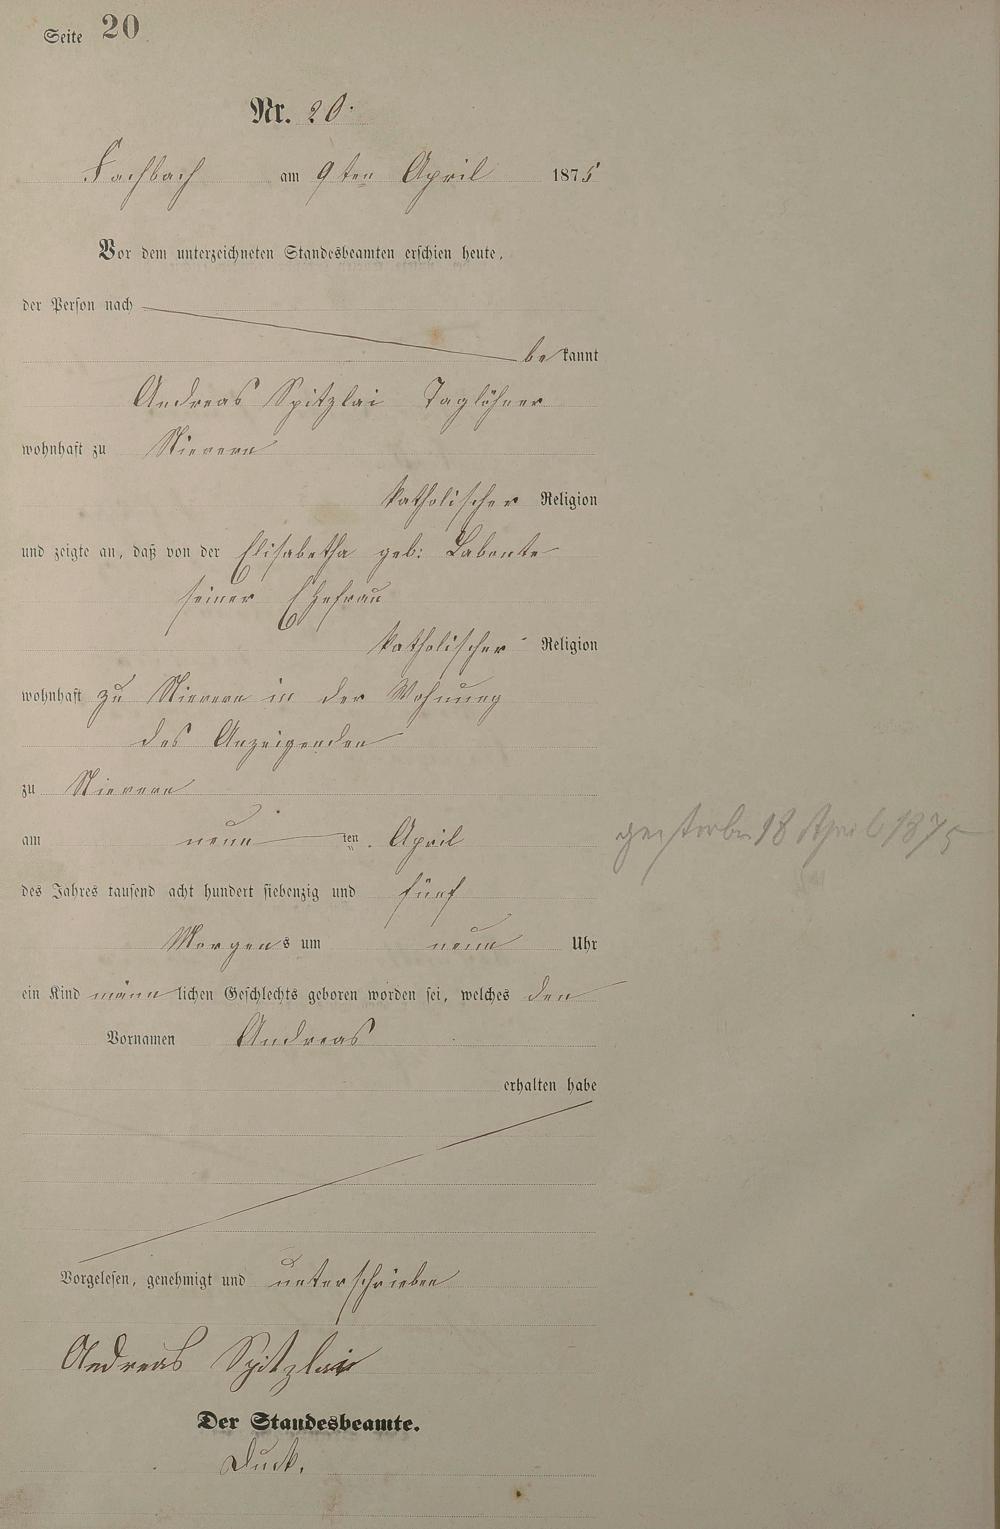 Seite 20
Nr. 20.
Fachbach am 9ten April 1875
Vor dem unterzeichneten Standesbeamten erschien heute,
der Person nach
bekannt
Andreas Spitzlai Taglöhner
wohnhaft zu Nievern
katholischer Religion
und zeigte an, daß von der Elisabetha geb: Labonte
seiner Ehefrau
katholischer Religion
wohnhaft zu Nievern in der Wohnung
des Anzeigenden
zu Nievern
am neun ten April
gestorben 18 April 1875
des Jahres tausend acht hundert siebenzig und fünf
Morgens um neun Uhr
ein Kind männlichen Geschlechts geboren worden sei, welches den
Vornamen Andreas
erhalten habe
Vorgelesen, genehmigt und unterschrieben
Andreas Spitzlai
Der Standesbeamte.